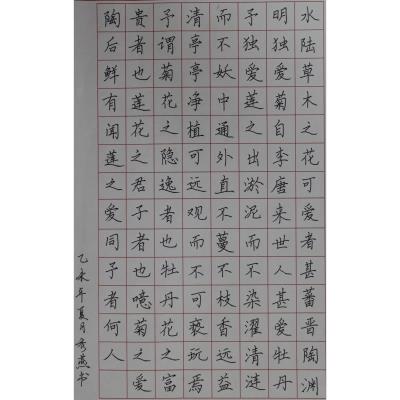 水陆草木之花可爱者甚蕃晋陶渊
明独爱菊自李唐来世人甚爱牡丹
予独爱莲之出淤泥而不染濯清涟
而不妖中通外直不蔓不枝香远益
清亭亭净植可远观而不可亵玩焉
予谓菊花之隐逸者也牡丹花之富
贵者也莲花之君子者也噫菊之爱
陶后鲜有闻莲之爱同予者何人
乙未年夏月秀燕书